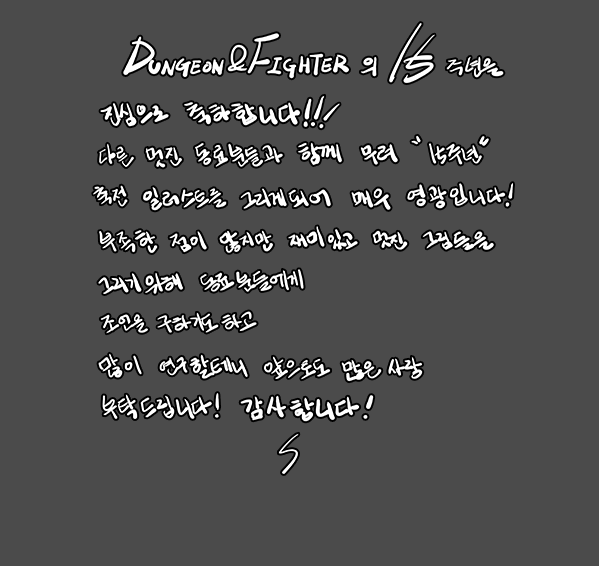 DUNGEON&FIGHTER 의 15 주년을
진심으로 축하합니다!!!
다른 멋진 동료분들과 함께 무려 "15주년"
축전 일러스트를 그리게되어 매우 영광입니다!
부족한 점이 많지만 재미있고 멋진 그림들을
그리기 위해 동료분들에게
조언을 구하기도 하고
많이 연구할테니 앞으로도 많은 사랑
부탁드립니다! 감사합니다!